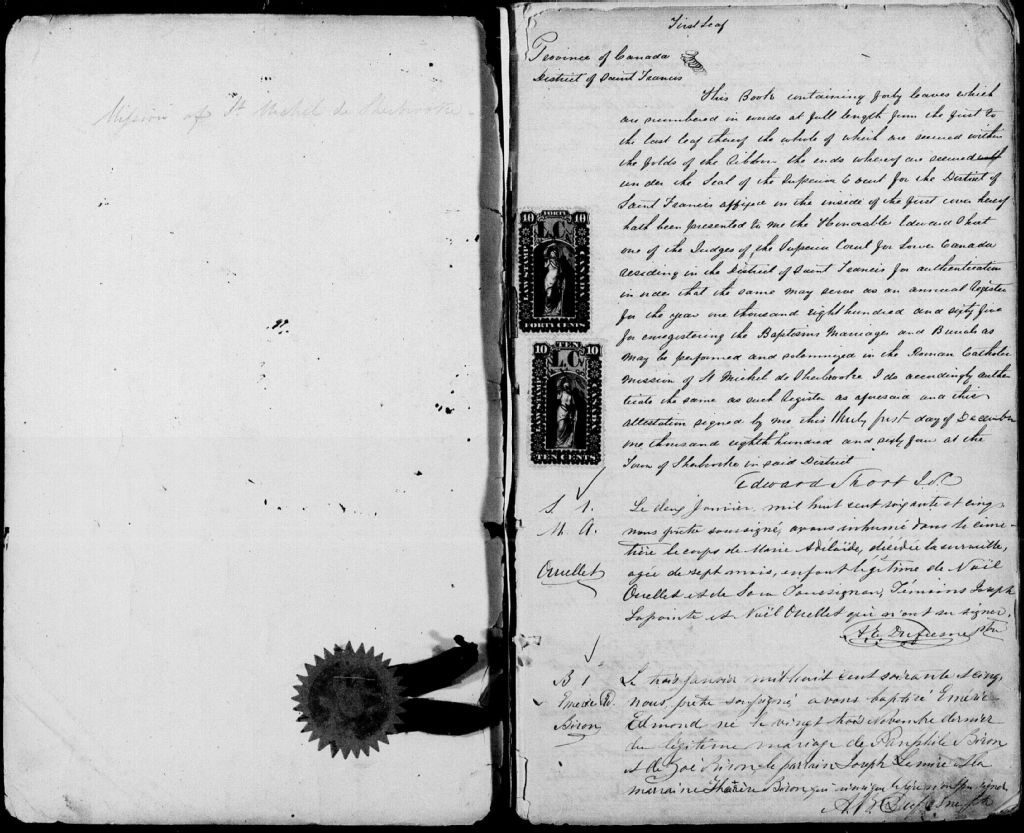 Mission of St Michel de Sherbrooke
First Leaf
Province of Canada
District of Saint Francis
This Book containing forty leaves which
are numbered in words at full length from the first to
the last leaf thereof the whole of which are secured within
the folds of the Ribbon the ends whereof are secured
under the Seal of the Superior Court for the District of
Saint Francis affixed in the inside of the first cover hereof
hath been presented to me the Honorable Edward Short
one of the Judges of the Superior Court for Lower Canada
residing in the District of Saint Francis for authentication
in order that the same may serve as an annual Register
for the year one thousand eight hundred and sixty five
for enregistering the Baptisms Marriages and Burials as
may be performed and solemnized in the Roman Catholic
Mission of St Michel de Sherbrooke I do accordingly authen
ticate the same as such Register as aforesaid and this
attestation signed by me this thirty first day of December
one thousand eighth hundred and sixty four at the
Town of Sherbrooke in said District
Edward Short J.S.C
10 FORTY 10
L.C.
LAW STAMP
FORTY CENTS
10 TEN 10
L.C.
LAW STAMP
TEN CENTS
S. 1.
M. A.
Ouellet
Le deux Janvier, mil huit cent soixante et cinq
nous prêtre soussigné, avons inhumé dans le cime-
tière le corps de Marie Adelaïde, décédée la surveille,
agée de sept mois, enfant légitime de Noël
Ouellet et de Sara Toussignan; Témoins Joseph
Lapointe et Noël Ouellet qui n'ont su signer.
A. E. Dufresne ptre
B 1
Emerie E.
Biron
Le trois janvier mil huit cent soixante et cinq
nous, prêtre soussigné, avons baptisé Emérie
Edmond né le vingt trois Novembre dernier
du légitime mariage de Pamphile Biron
et de Zoé Biron, le parrain Joseph Lemire et la
marraine Thérèse Biron qui
A. E. Dufresne ptre